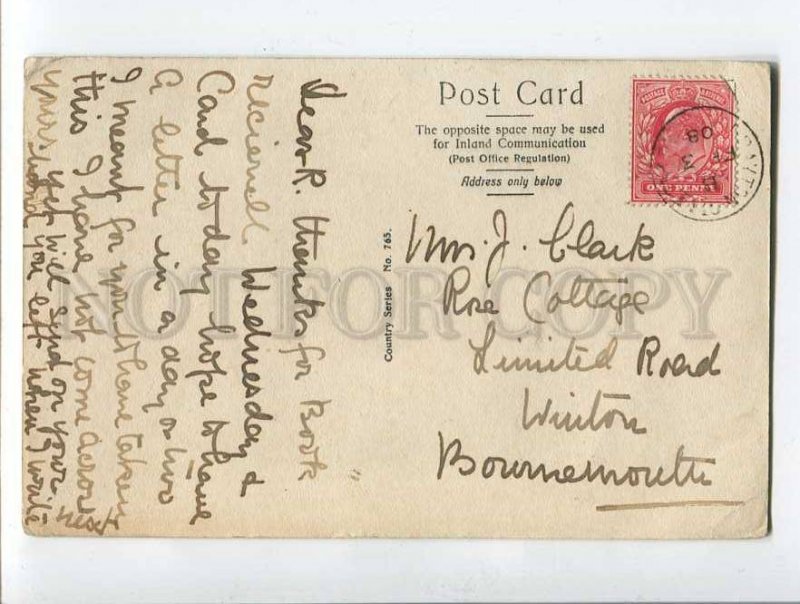 Post Card
The opposite space may be used
for Inland Communication
(Post Office Regulation)
Address only below
ONE PENNY
Mrs. J. Clark
Rose Cottage
Limited Road
Winton
Bournemouth
Country Series No. 765.
Dear R. thanks for Book
recieved Wednesday &
Card today hope to have
a letter in a day or two
I meant for you to have taken
this I have not come across
yours yet will send on yours next
you left when I write
NOT FOR COPY